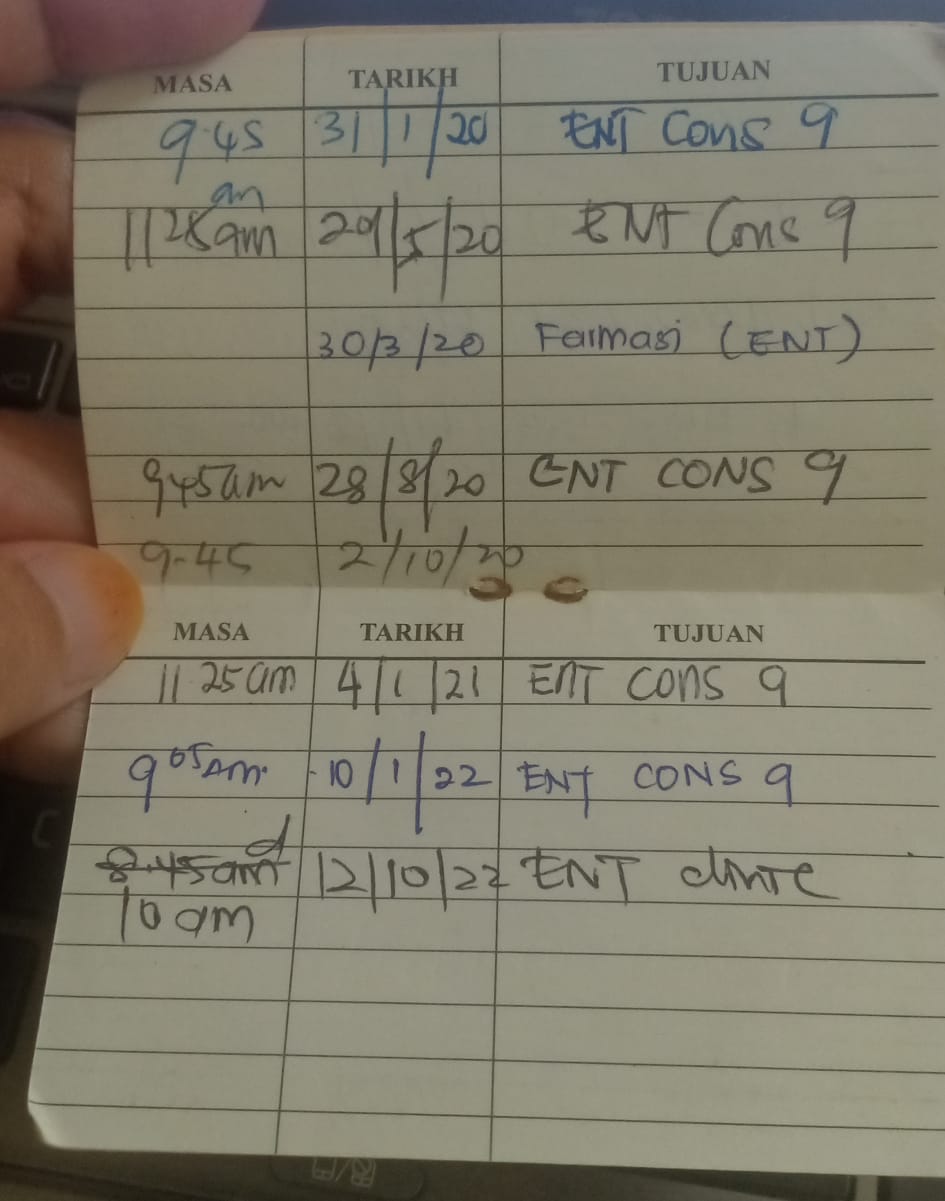 MASA TARIKH TUJUAN
9.45 am 31/1/20 ENT Cons 9
11 25am 29/5/20 ENT Cons 9
30/3/20 Farmasi (ENT)
945am 28/8/20 ENT CONS 9
9-45 2/10/20
MASA TARIKH TUJUAN
11 25am 4/1/21 ENT CONS 9
9 05 Am. 10/1/22 ENT CONS 9
8.45am 12/10/22 ENT clinic
10 am